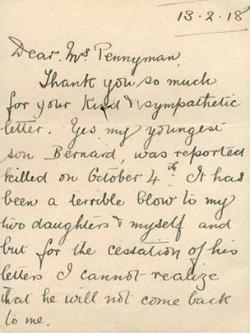 13-2-18
Dear Mrs Pennyman
Thank you so much
for your kind & sympathetic
letter. Yes, my youngest
son Bernard, was reported
killed on October 4th. It has
been a terrible blow to my
two daughters & myself and
but for the cessation of his
letters I cannot realize
that he will not come back
to me.